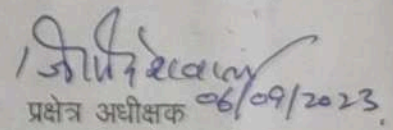 प्रक्षेत्र अधीक्षक 06/09/2023